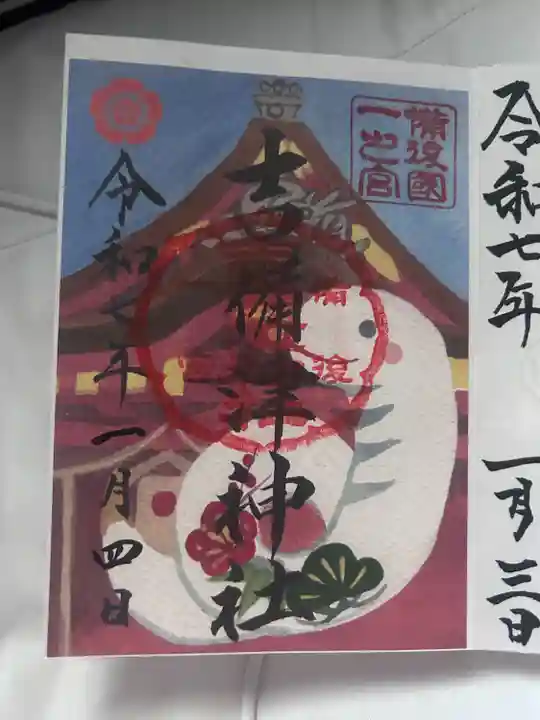 令和七年 一月三日
備後國
一之宮
吉備津神社
令和七年 一月四日